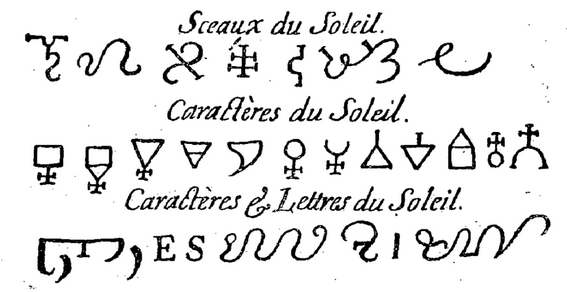 Sceaux du Soleil.
Caractères du Soleil.
Caractères & Lettres du Soleil.
E S